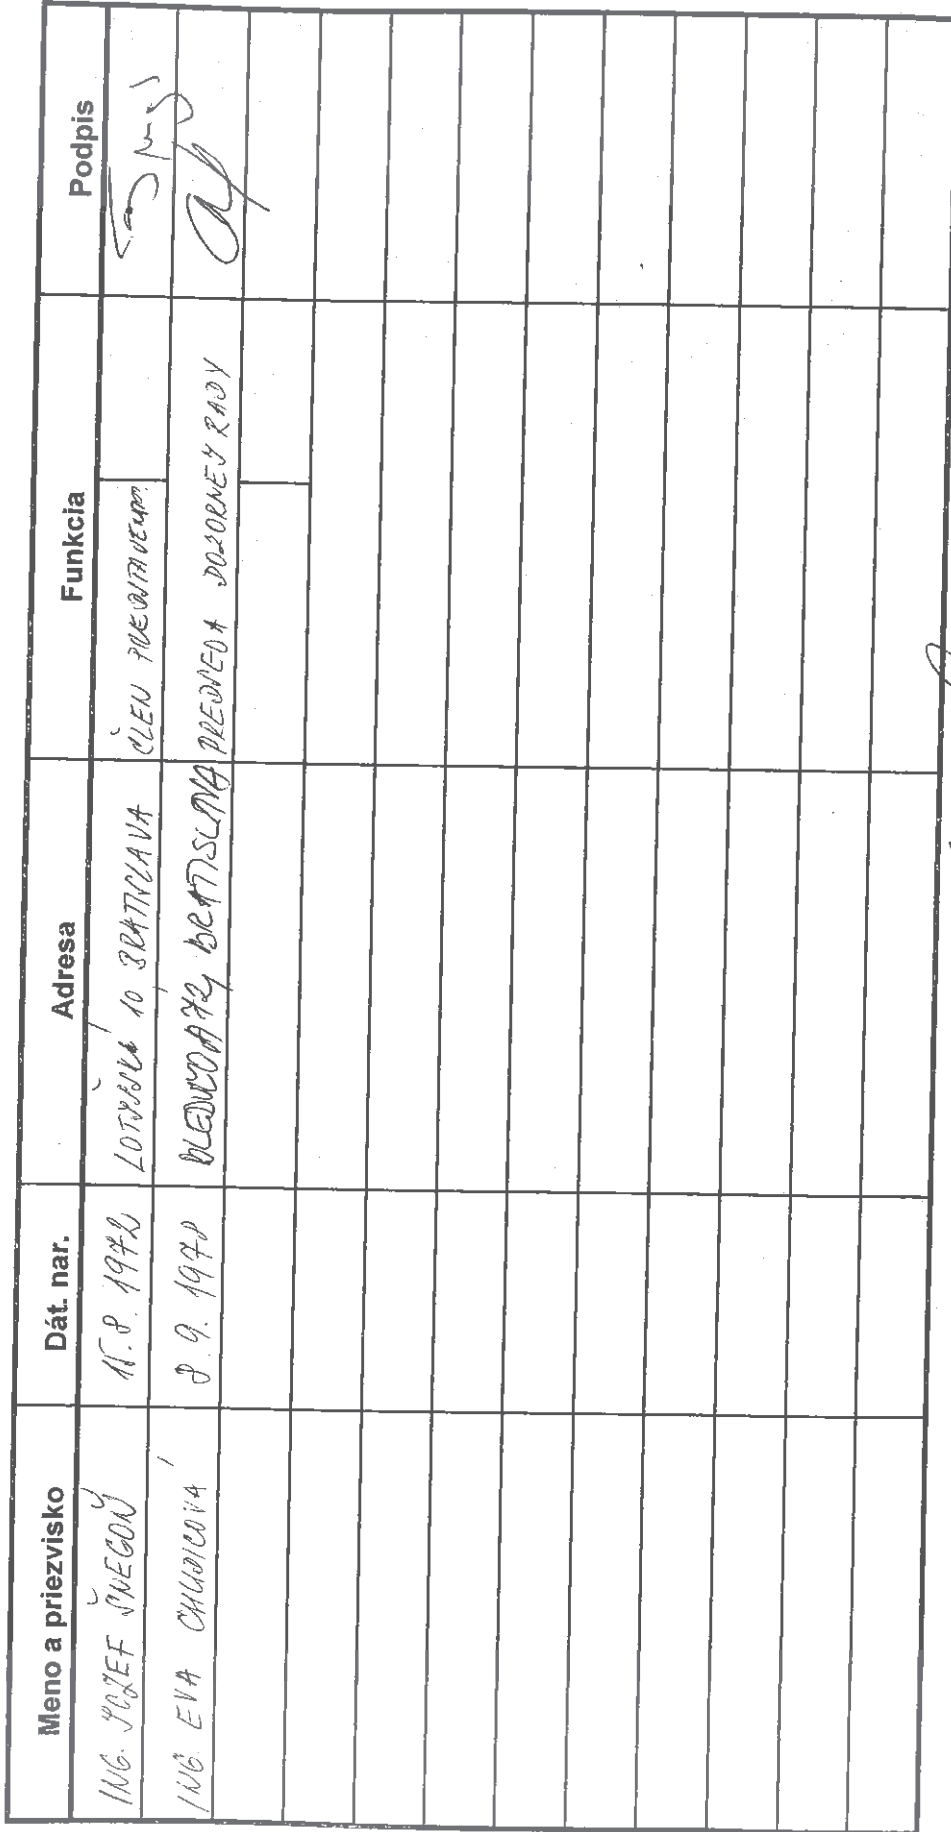 Meno a priezvisko Dát. nar. Adresa Funkcia Podpis
ING. JOZEF ŠNEGOŇ 15.8.1972 LOTYŠSKÁ 10 BRATISLAVA ČLEN PREDSTAVENSTVA
ING. EVA CHUDICOVÁ 8.9.1978 BRATISLAVA PREDSEDA DOZORNEJ RADY